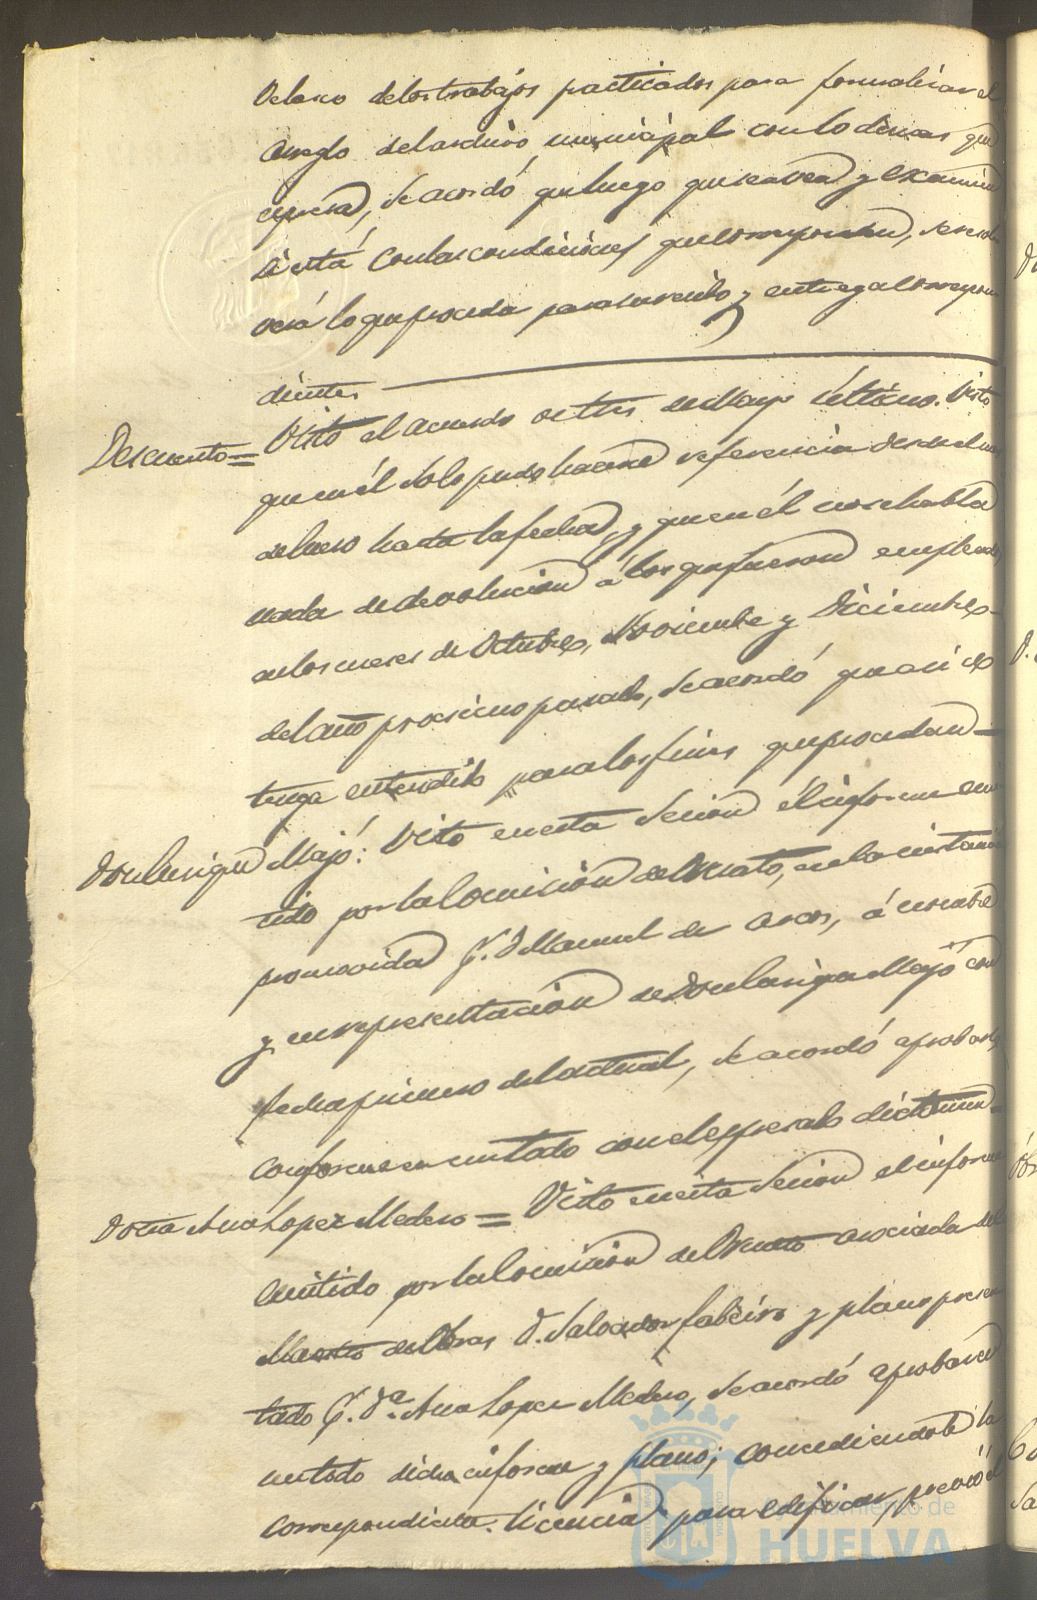 Velasco delos trabajos practicados para formalizar el
arreglo del archivo municipal con lo demas que
espresa, se acordó que luego que sea vea y examine
si está con las condiciones que corresponden, se resol
verá lo que proceda para su recibo y entrega correspon
diente.
Descuento = Visto el acuerdo de tres de Mayo último. Visto
que en él solo pudo hacerse referencia desde el mes
de Enero hasta la fecha, y que en él no se habla
nada de devolucion á los que fueron empleados
en los meses de Octubre, Noviembre y Diciembre
del año procsimo pasado, se acordó que así se
tenga entendido para los fines que procedan =
Don Enrique Majó: Visto en esta Sesion el informe emi
tido por la Comision de Ornato, en la instancia
promovida p.r D. Manuel de Arcos, á nombre
y en representacion de Don Enrique Majó con
fecha primero del actual, se acordó aprobarlo,
conforme en un todo con el espresado dictamen =
Doña Ana Lopez Medero = Visto en esta Sesion el informe
emitido por la Comision del Ornato asociada del
Maestro de Obras D. Salvador Fabeiro y plano presen
tado p.r D.ª Ana Lopez Medero, se acordó aprobar en
un todo dicho informe y plano; concediendole la
correspondiente licencia para edificar, previo el
Ayuntamiento de
HUELVA